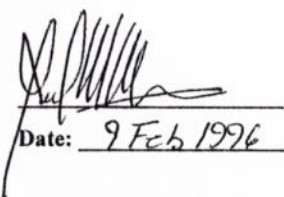 Date: 9 Feb 1996